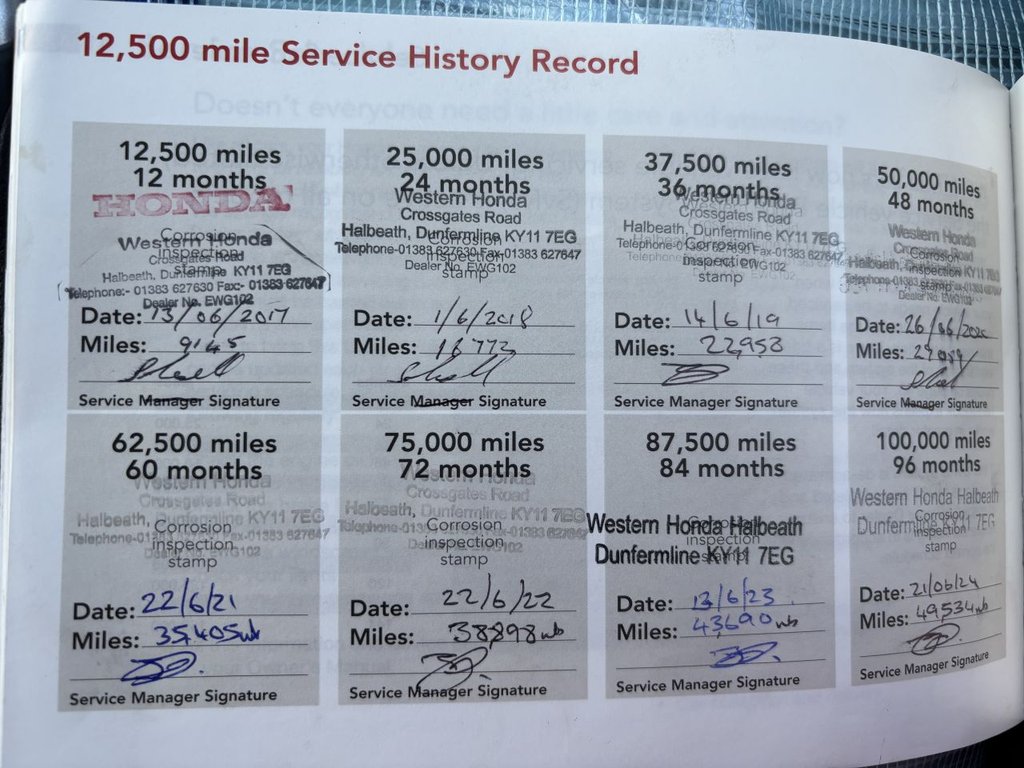 12,500 mile Service History Record
12,500 miles
12 months
HONDA
Corrosion
inspection
stamp
Western Honda
Crossgates Road
Halbeath, Dunfermline KY11 7EG
Telephone:- 01383 627630 Fax- 01383 627647
Dealer No. EWG102
Date: 13/06/2017
Miles: 9145
Service Manager Signature
25,000 miles
24 months
Western Honda
Crossgates Road
Halbeath, Dunfermline KY11 7EG
Corrosion
inspection
stamp
Telephone-01383 627630 Fax-01383 627647
Dealer No. EWG102
Date: 1/6/2018
Miles: 16772
Service Manager Signature
37,500 miles
36 months
Western Honda
Crossgates Road
Halbeath, Dunfermline KY11 7EG
Corrosion
inspection
stamp
Fax-01383 627647
EWG102
Date: 14/6/19
Miles: 22953
Service Manager Signature
50,000 miles
48 months
Western Honda
Crossgates Road
Corrosion
inspection
stamp
Dealer No. EWG102
Date: 26/06/2020
Miles:
Service Manager Signature
62,500 miles
60 months
Western Honda
Crossgates Road
Halbeath, Dunfermline KY11 7EG
Corrosion
inspection
stamp
Fax-01383 627647
Date: 22/6/21
Miles: 35405
Service Manager Signature
75,000 miles
72 months
Western Honda
Crossgates Road
Halbeath, Dunfermline KY11 7EG
Corrosion
inspection
stamp
Fax-01383 627647
Date: 22/6/22
Miles: 38898
Service Manager Signature
87,500 miles
84 months
Western Honda Halbeath
Dunfermline KY11 7EG
Date: 13/6/23
Miles: 43690
Service Manager Signature
100,000 miles
96 months
Western Honda Halbeath
Dunfermline KY11 7EG
Corrosion
inspection
stamp
Date: 21/06/24
Miles: 49534
Service Manager Signature